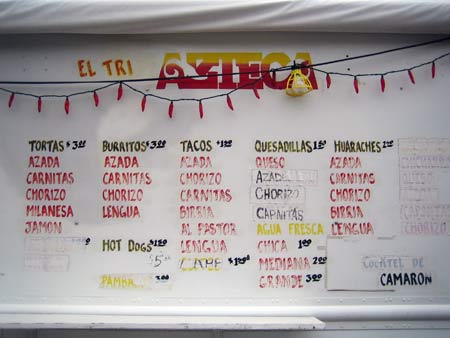 EL TRI AZTECA
TORTAS $3.00
AZADA
CARNITAS
CHORIZO
MILANESA
JAMON
BURRITOS $3.00
AZADA
CARNITAS
CHORIZO
LENGUA
HOT DOGS $1.50
$5.00
PAMBA 3.00
TACOS
AZADA
CHORIZO
CARNITAS
BIRRIA
AL PASTOR
LENGUA
QUESADILLAS
QUESO
AZADA
CHORIZO
CARNITAS
AGUA FRESCA
CHICA 1.00
MEDIANA 2.00
GRANDE 3.00
HUARACHES
AZADA
CARNITAS
CHORIZO
BIRRIA
LENGUA
COCKTEL DE
CAMARON
CHORIZO